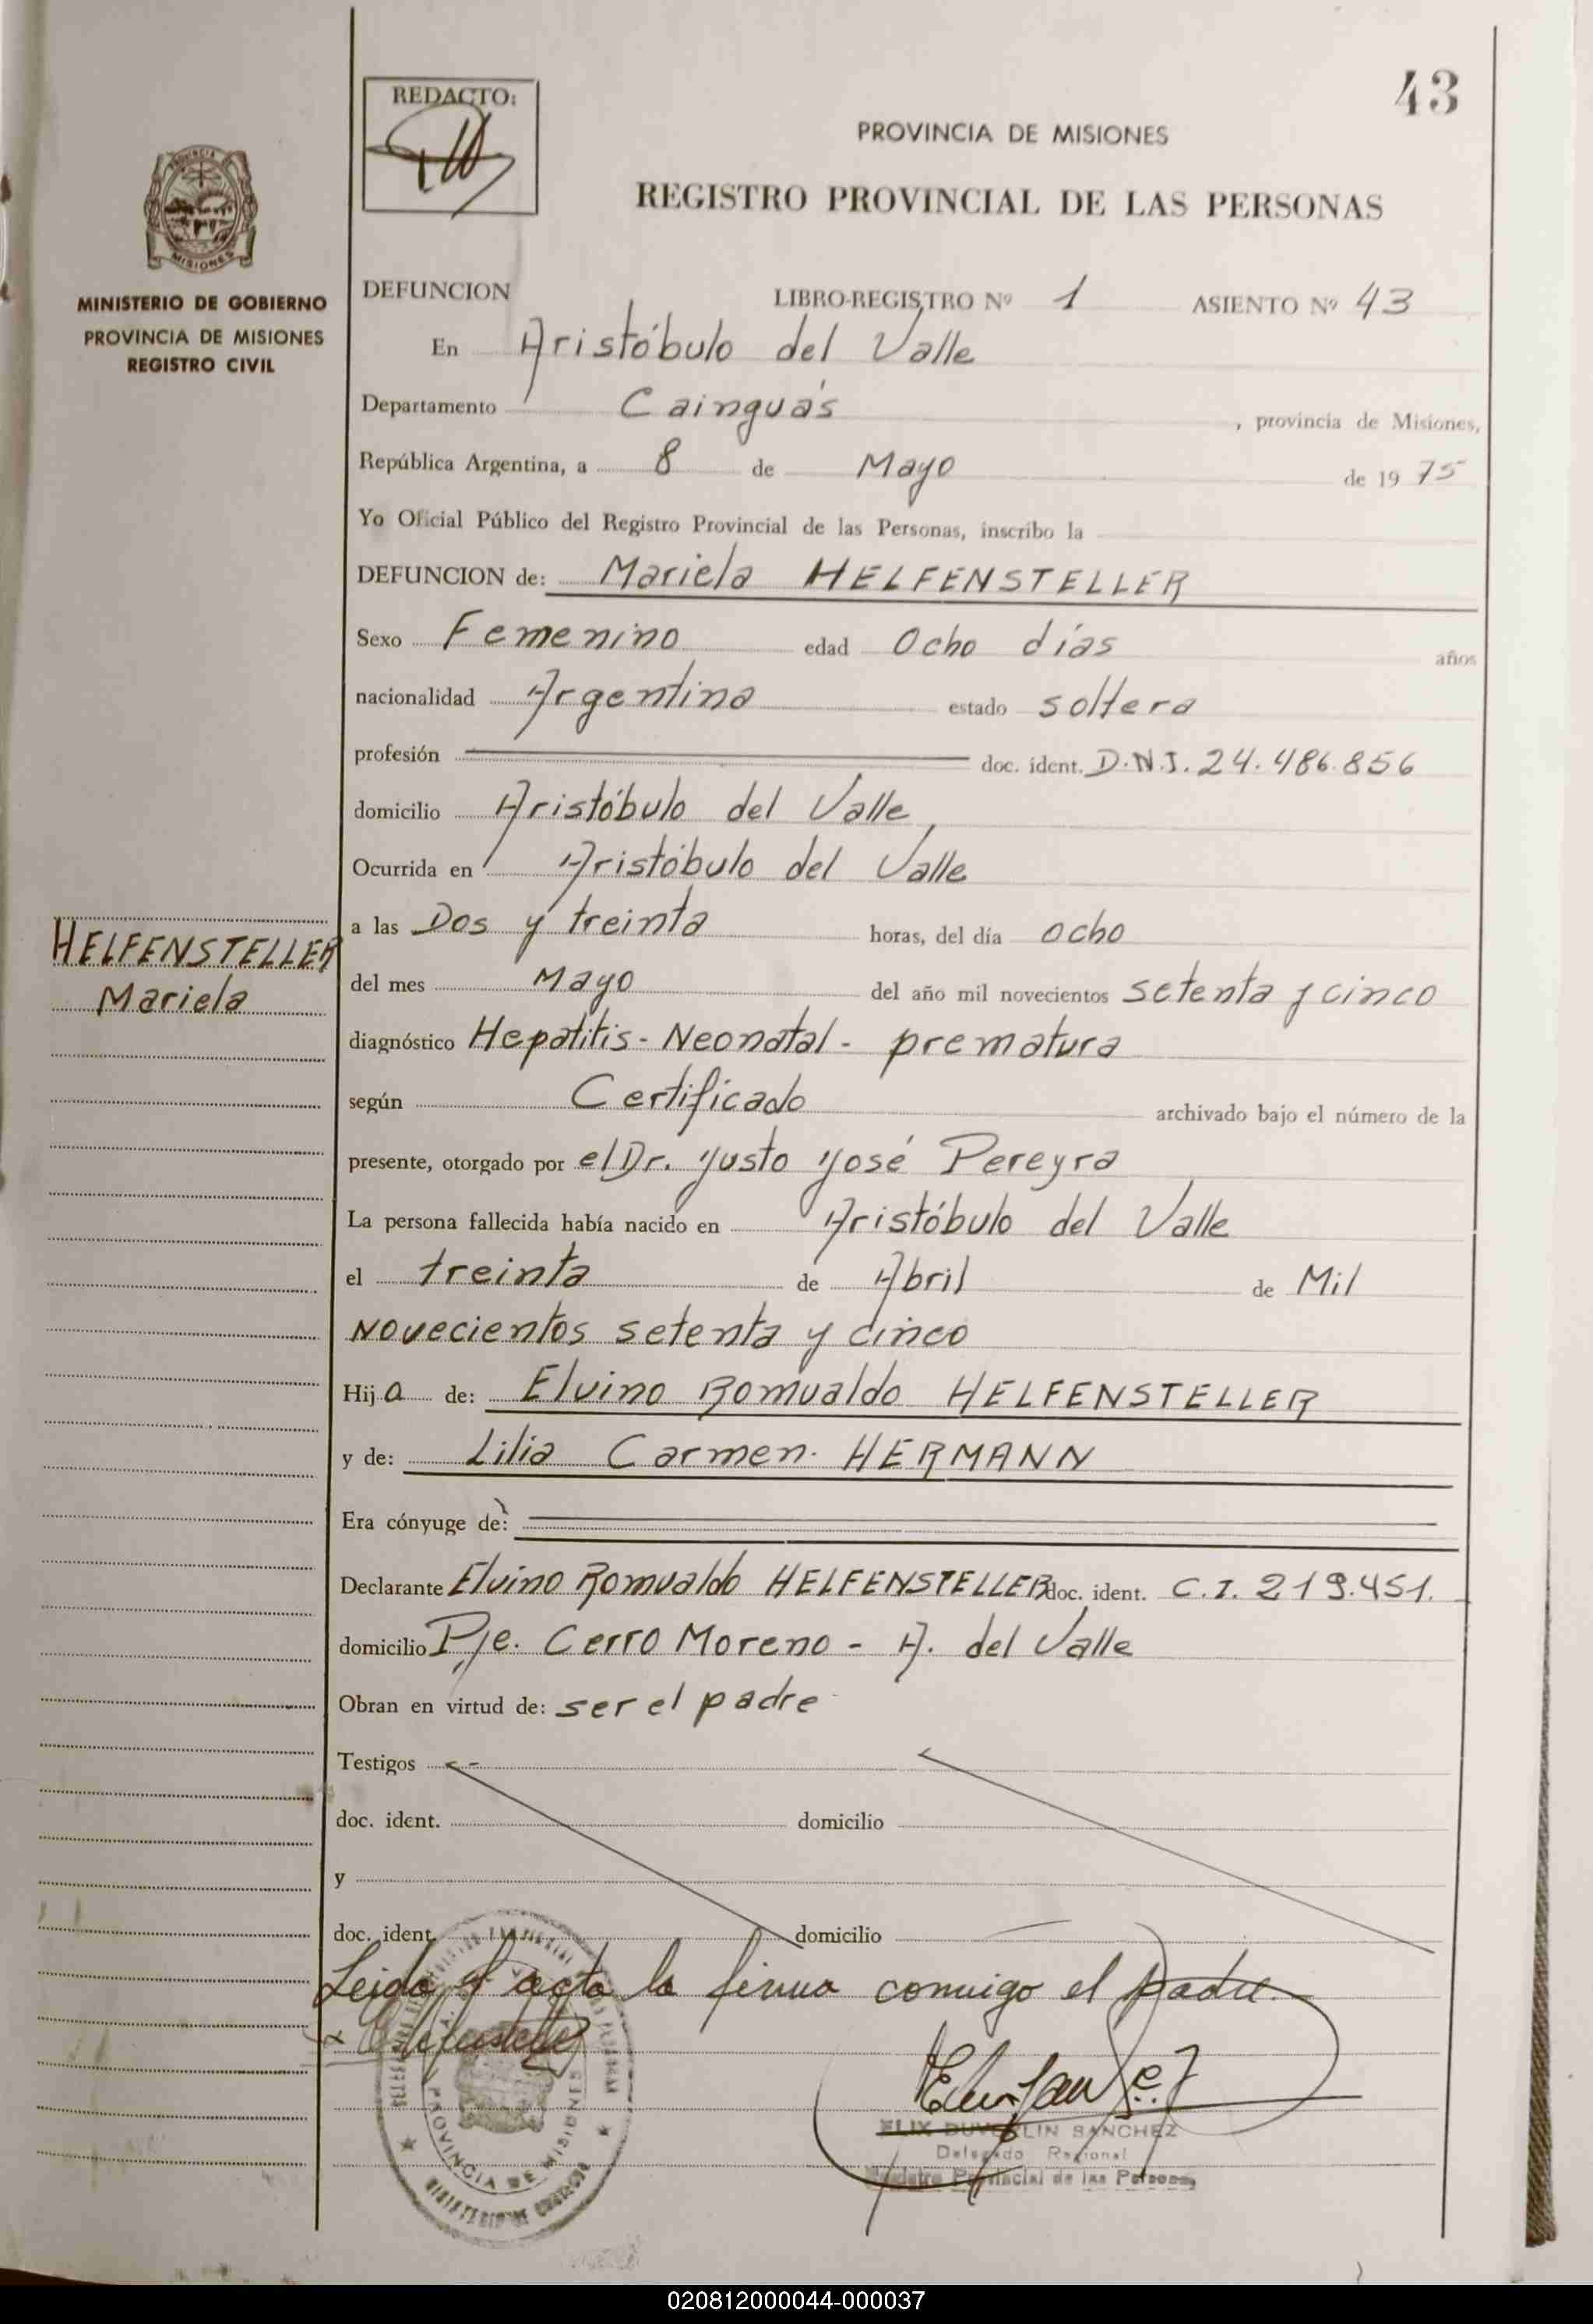 43
REDACTO:
PROVINCIA DE MISIONES
REGISTRO PROVINCIAL DE LAS PERSONAS
MISIONES
MINISTERIO DE GOBIERNO
PROVINCIA DE MISIONES
REGISTRO CIVIL
DEFUNCION LIBRO-REGISTRO Nº 1 ASIENTO Nº 43
En Aristóbulo del Valle
Departamento Cainguás, provincia de Misiones,
República Argentina, a 8 de Mayo de 1975
Yo Oficial Público del Registro Provincial de las Personas, inscribo la
DEFUNCION de: Mariela HELFENSTELLER
Sexo Femenino edad Ocho días años
nacionalidad Argentina estado soltera
profesión doc. ident. D.N.I. 24.486.856
domicilio Aristóbulo del Valle
Ocurrida en Aristóbulo del Valle
a las Dos y treinta horas, del día ocho
HELFENSTELLER
Mariela
del mes Mayo del año mil novecientos setenta y cinco
diagnóstico Hepatitis - Neonatal - prematura
según Certificado archivado bajo el número de la
presente, otorgado por el Dr. Justo José Pereyra
La persona fallecida había nacido en Aristóbulo del Valle
el treinta de Abril de Mil
Novecientos setenta y cinco
Hija de: Elvino Romualdo HELFENSTELLER
y de: Lilia Carmen HERMANN
Era cónyuge de:
Declarante Elvino Romualdo HELFENSTELLER doc. ident. C.I. 219.451.
domicilio Pje. Cerro Moreno - A. del Valle
Obran en virtud de: ser el padre
Testigos
doc. ident. domicilio
y
doc. ident. domicilio
Leida el acta la firma conmigo el padre.
PROVINCIA DE MISIONES
MINISTERIO DE GOBIERNO
SANCHEZ
Delegado Regional
Registro Provincial de las Personas
020812000044-000037